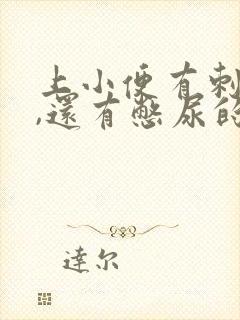 上小便有刺
,還有憋尿的
達尔